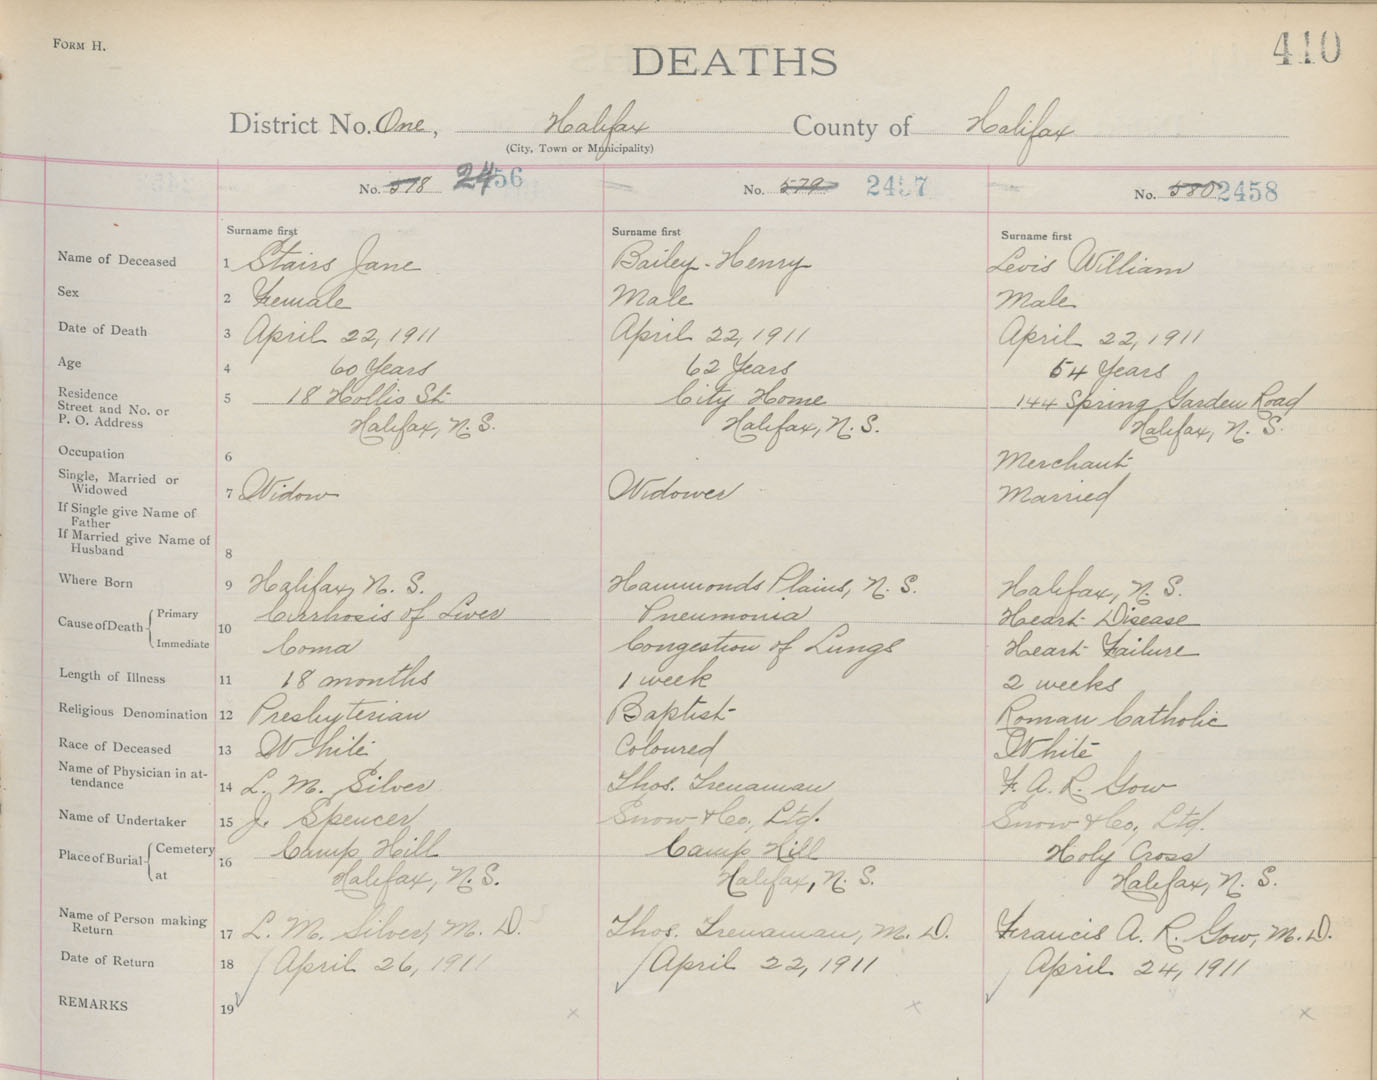 FORM H.
410
DEATHS
District No. One, Halifax County of Halifax
(City, Town or Municipality)
No. 578 2456 No. 579 2457 No. 580 2458
Surname first Surname first Surname first
Name of Deceased 1 Stairs Jane Bailey - Henry Levis William
Sex 2 Female Male Male
Date of Death 3 April 22, 1911 April 22, 1911 April 22, 1911
Age 4 60 Years 62 Years 54 Years
Residence 5 18 Hollis St. City Home 144 Spring Garden Road
Street and No. or
P. O. Address Halifax, N. S. Halifax, N. S. Halifax, N. S.
Occupation 6 Merchant
Single, Married or
Widowed 7 Widow Widower Married
If Single give Name of
Father
If Married give Name of
Husband 8
Where Born 9 Halifax, N. S. Hammonds Plains, N. S. Halifax, N. S.
Cause of Death Primary 10 Cirrhosis of Liver Pneumonia Heart Disease
Immediate Coma Congestion of Lungs Heart Failure
Length of Illness 11 18 months 1 week 2 weeks
Religious Denomination 12 Presbyterian Baptist Roman Catholic
Race of Deceased 13 White Coloured White
Name of Physician in at-
tendance 14 L. M. Silver Thos. Trenaman F. A. R. Gow
Name of Undertaker 15 J. Spencer Snow & Co., Ltd. Snow & Co., Ltd.
Place of Burial Cemetery 16 Camp Hill Camp Hill Holy Cross
at Halifax, N. S. Halifax, N. S. Halifax, N. S.
Name of Person making
Return 17 L. M. Silver, M. D. Thos. Trenaman, M. D. Francis A. R. Gow, M. D.
Date of Return 18 April 26, 1911 April 22, 1911 April 24, 1911
REMARKS 19